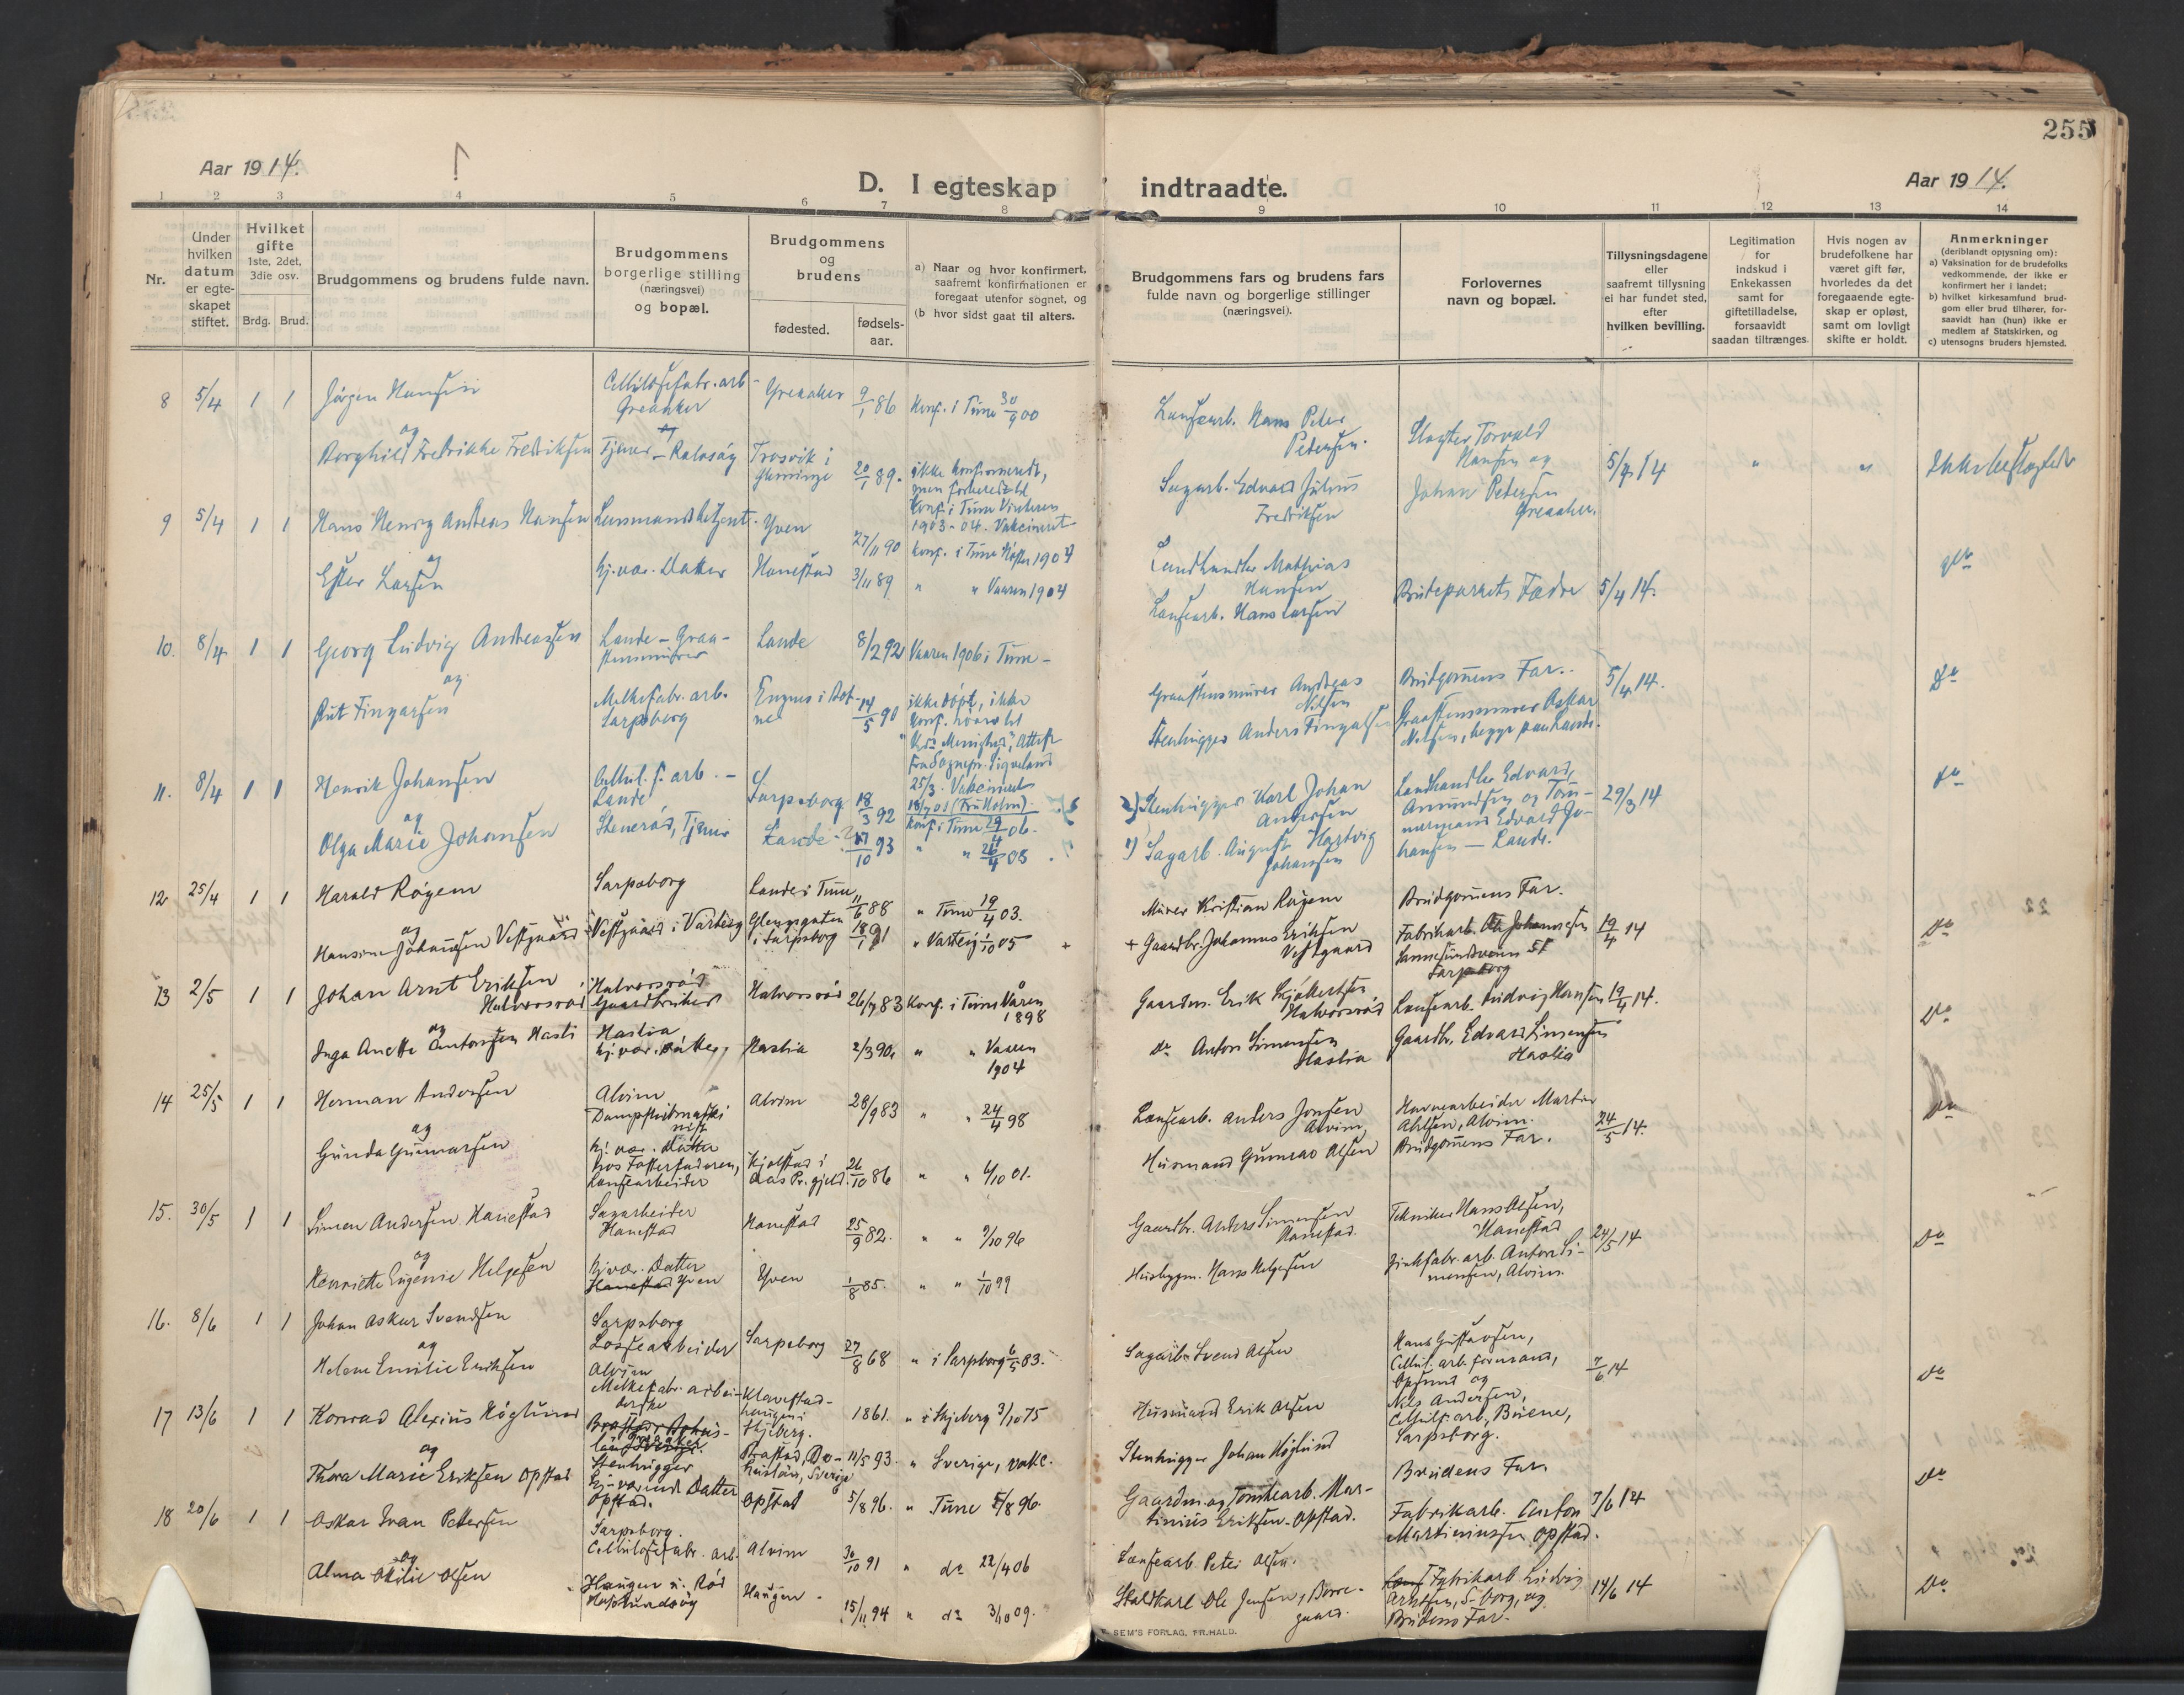 255
Aar 1914.
D. I egteskap indtraadte.
Aar 1914.
1 2 3 4 5 6 7 8 9 10 11 12 13 14
Nr.
Under hvilken datum er egteskapet stiftet.
Hvilket gifte 1ste, 2det, 3die osv.
Brdg. Brud.
Brudgommens og brudens fulde navn.
Brudgommens borgerlige stilling (næringsvei) og bopæl.
Brudgommens og brudens
fødested.
fødsels-aar.
a) Naar og hvor konfirmert, saafremt konfirmationen er foregaat utenfor sognet, og
(b hvor sidst gaat til alters.
Brudgommens fars og brudens fars fulde navn og borgerlige stillinger (næringsvei).
Forlovernes navn og bopæl.
Tillysningsdagene eller saafremt tillysning ei har fundet sted, efter hvilken bevilling.
Legitimation for indskud i Enkekassen samt for giftetilladelse, forsaavidt saadan tiltrænges.
Hvis nogen av brudefolkene har været gift før, hvorledes da det foregaaende egteskap er opløst, samt om lovligt skifte er holdt.
Anmerkninger (deriblandt opjysning om):
a) Vaksination for de brudefolks vedkommende, der ikke er konfirmert her i landet;
b) hvilket kirkesamfund brudgom eller brud tilhører, forsaavidt han (hun) ikke er medlem af Statskirken, og
c) utensogns bruders hjemsted.
8 5/4 1 1 Jørgen Hansen
Cellulosefabr. arb. Greaaker
Greaaker 9/1 86 Konf. i Tune 30/9 00
Hans Peter Petersen.
Torvald Hansen og Johan Petersen Greaaker.
5/4 14 " "
og
Borghild Fredrikke Fredriksen
Tjener
Trosvik i Glemminge 20/1 89.
ikke konfirmeret, men forberedt til Konf. i Tune Vinteren 1903-04. Vakcineret
Sagarb. Edvard Julius Fredriksen
9 5/4 1 1 Hans Henry Andreas Hansen
Lensmandsbetjent.
Yven 27/11 90 Konf. i Tune Høsten 1904
Landhandler Mathias Hansen
Brudeparrets Fædre 5/4 14. do
og
Ester Larsen
hj.vær. Datter Hanestad 3/11 89 " " Vaaren 1904
Hans Larsen
10. 8/4 1 1 Georg Ludvig Andreassen
Lande - Graastensmurer
Lande 8/2 92 Vaaren 1906 i Tune -
Graastensmurer Andreas Nilsen
Brudgommens Far.
5/4 14. Do
og
Rut Fingarsen
Melkefabr. arb. Sarpsborg
14/5 90
ikke døpt, ikke konf.
Stenhugger Anders
Graastensmurer Oskar Nilsen, begge paa Lande.
11. 8/4 1 1 Henrik Johansen
Cellul. f. arb. - Lande
Sarpsborg 18/3 92
Konf. i Tune 29/4 06.
2) Stenhugger Karl Johan
Landhandler Edvard Amundsen og Tømmermand Edvard Johansen - Lande.
29/3 14 do
og
Olga Marie Johansen
Stenerød, Tjener
Lande 17/10 93 " " 26/4 08
1) Sagarb. August Hartvig Johansen
12 25/4 1 1 Harald Røgem
Sarpsborg
Lande i Tune 11/6 88 " Tune 19/4 03.
Murer Kristian Røgem
Brudgommens Far.
19/4 14 Do
og
Hansine Johannesen Vestgaard
Vestgaard i Varteig
Glengsgaten i Sarpsborg 18/1 91 " Varteig 1/10 05 +
+ Gaardbr. Johannes Eriksen Vestgaard
Fabrikarb. Ole Johannesen
Sannesundsveien 51 Sarpsborg
13 2/5 1 1 Johan Arnt Eriksen Halvorsrød
Halvorsrød
Gaardbruker
Halvorsrød 26/7 83 Konf. i Tune Våren 1898
Gaardm. Erik Halvorsrød
Ludvig Hansen 19/4 14. Do
og
Inga Anette Antonsen Hasli
Haslia
hj.vær. Datter
Haslia 2/3 90. " " Vaaren 1904
Do Anton Simensen Haslia
Gaardbr. Edvard Simensen Haslia
14 25/5 1 1 Herman Andersen
Alvim
Alvim 28/9 83 " " 24/4 98
Anders Jensen Alvim,
Havnearbeider Martin Ahlsen, Alvim.
24/5 14. Do
og
Gunda Gunnarsen
hj. vær. Datter hos Fosterfaderen,
Kjølstad i Aas Pr.gjeld. 26/10 86 " " 6/10 01.
Husmand Gunnar Olsen
Brudgommens Far.
15. 30/5 1 1 Simen Andersen Hanestad
Sagarbeider Hanestad
Hanestad 25/9 82. " " 4/10 96
Gaardbr. Anders Simensen Hanestad.
Tekniker Hans Olsen, Hanestad
24/5 14 Do
og
Henriette Eugenie Helgesen
hj.vær. Datter
Hanestad Yven
Yven 1/8 85. " " 1/10 99
Husbygm. Hans Helgesen
Zinkfabr. arb. Anton Simensen, Alvim.
16. 8/6 1 1 Johan Oskar Svendsen
Sarpsborg
Lossearbeider
Sarpsborg 27/8 68 " i Sarpsborg 6/5 83.
Sagarb. Svend Olsen
Hans Gustavsen, Cellul. arb. formand, Opsund og
7/6 14 Do
og
Helene Emilie Eriksen
Alvim
Melkefabr. arbeiderske
Klavestadhaugen i Skjeberg. 1861. " i Skjeberg 3/10 75
Husmand Erik Olsen
Nils Andersen, Cellulf. arb., Sarpsborg.
17 13/6 1 1 Konrad Alexius Høglund
Stenhugger
Brastad, Sverige 11/5 93. " Sverige, vakc.
Stenhugger Johan Høglund
Brudens Far. Do
og
Thora Marie Eriksen Opstad
hj.værende Datter Opstad.
Opstad 5/8 96. " Tune 5/8 96.
Gaardm. og Tomtearb. Martinius Eriksen - Opstad.
Fabrikarb. Anton Martiniussen Opstad.
7/6 14
18 20/6 1 1 Oskar Ivan Pettersen
Sarpsborg.
Cellulosefabr. arb.
Alvim 30/10 91 " do 22/4 06
Peter Olsen.
Fabrikarb. Ludvig Arntsen, S-borg, og
14/6 14 Do
og
Alma Otilie Olsen
Haugen u. Rød
Haugen 15/11 94 " do 3/10 09.
Staldkarl Ole Jensen, Borregaard.
Brudens Far.
SEM'S FORLAG, FR.HALD.